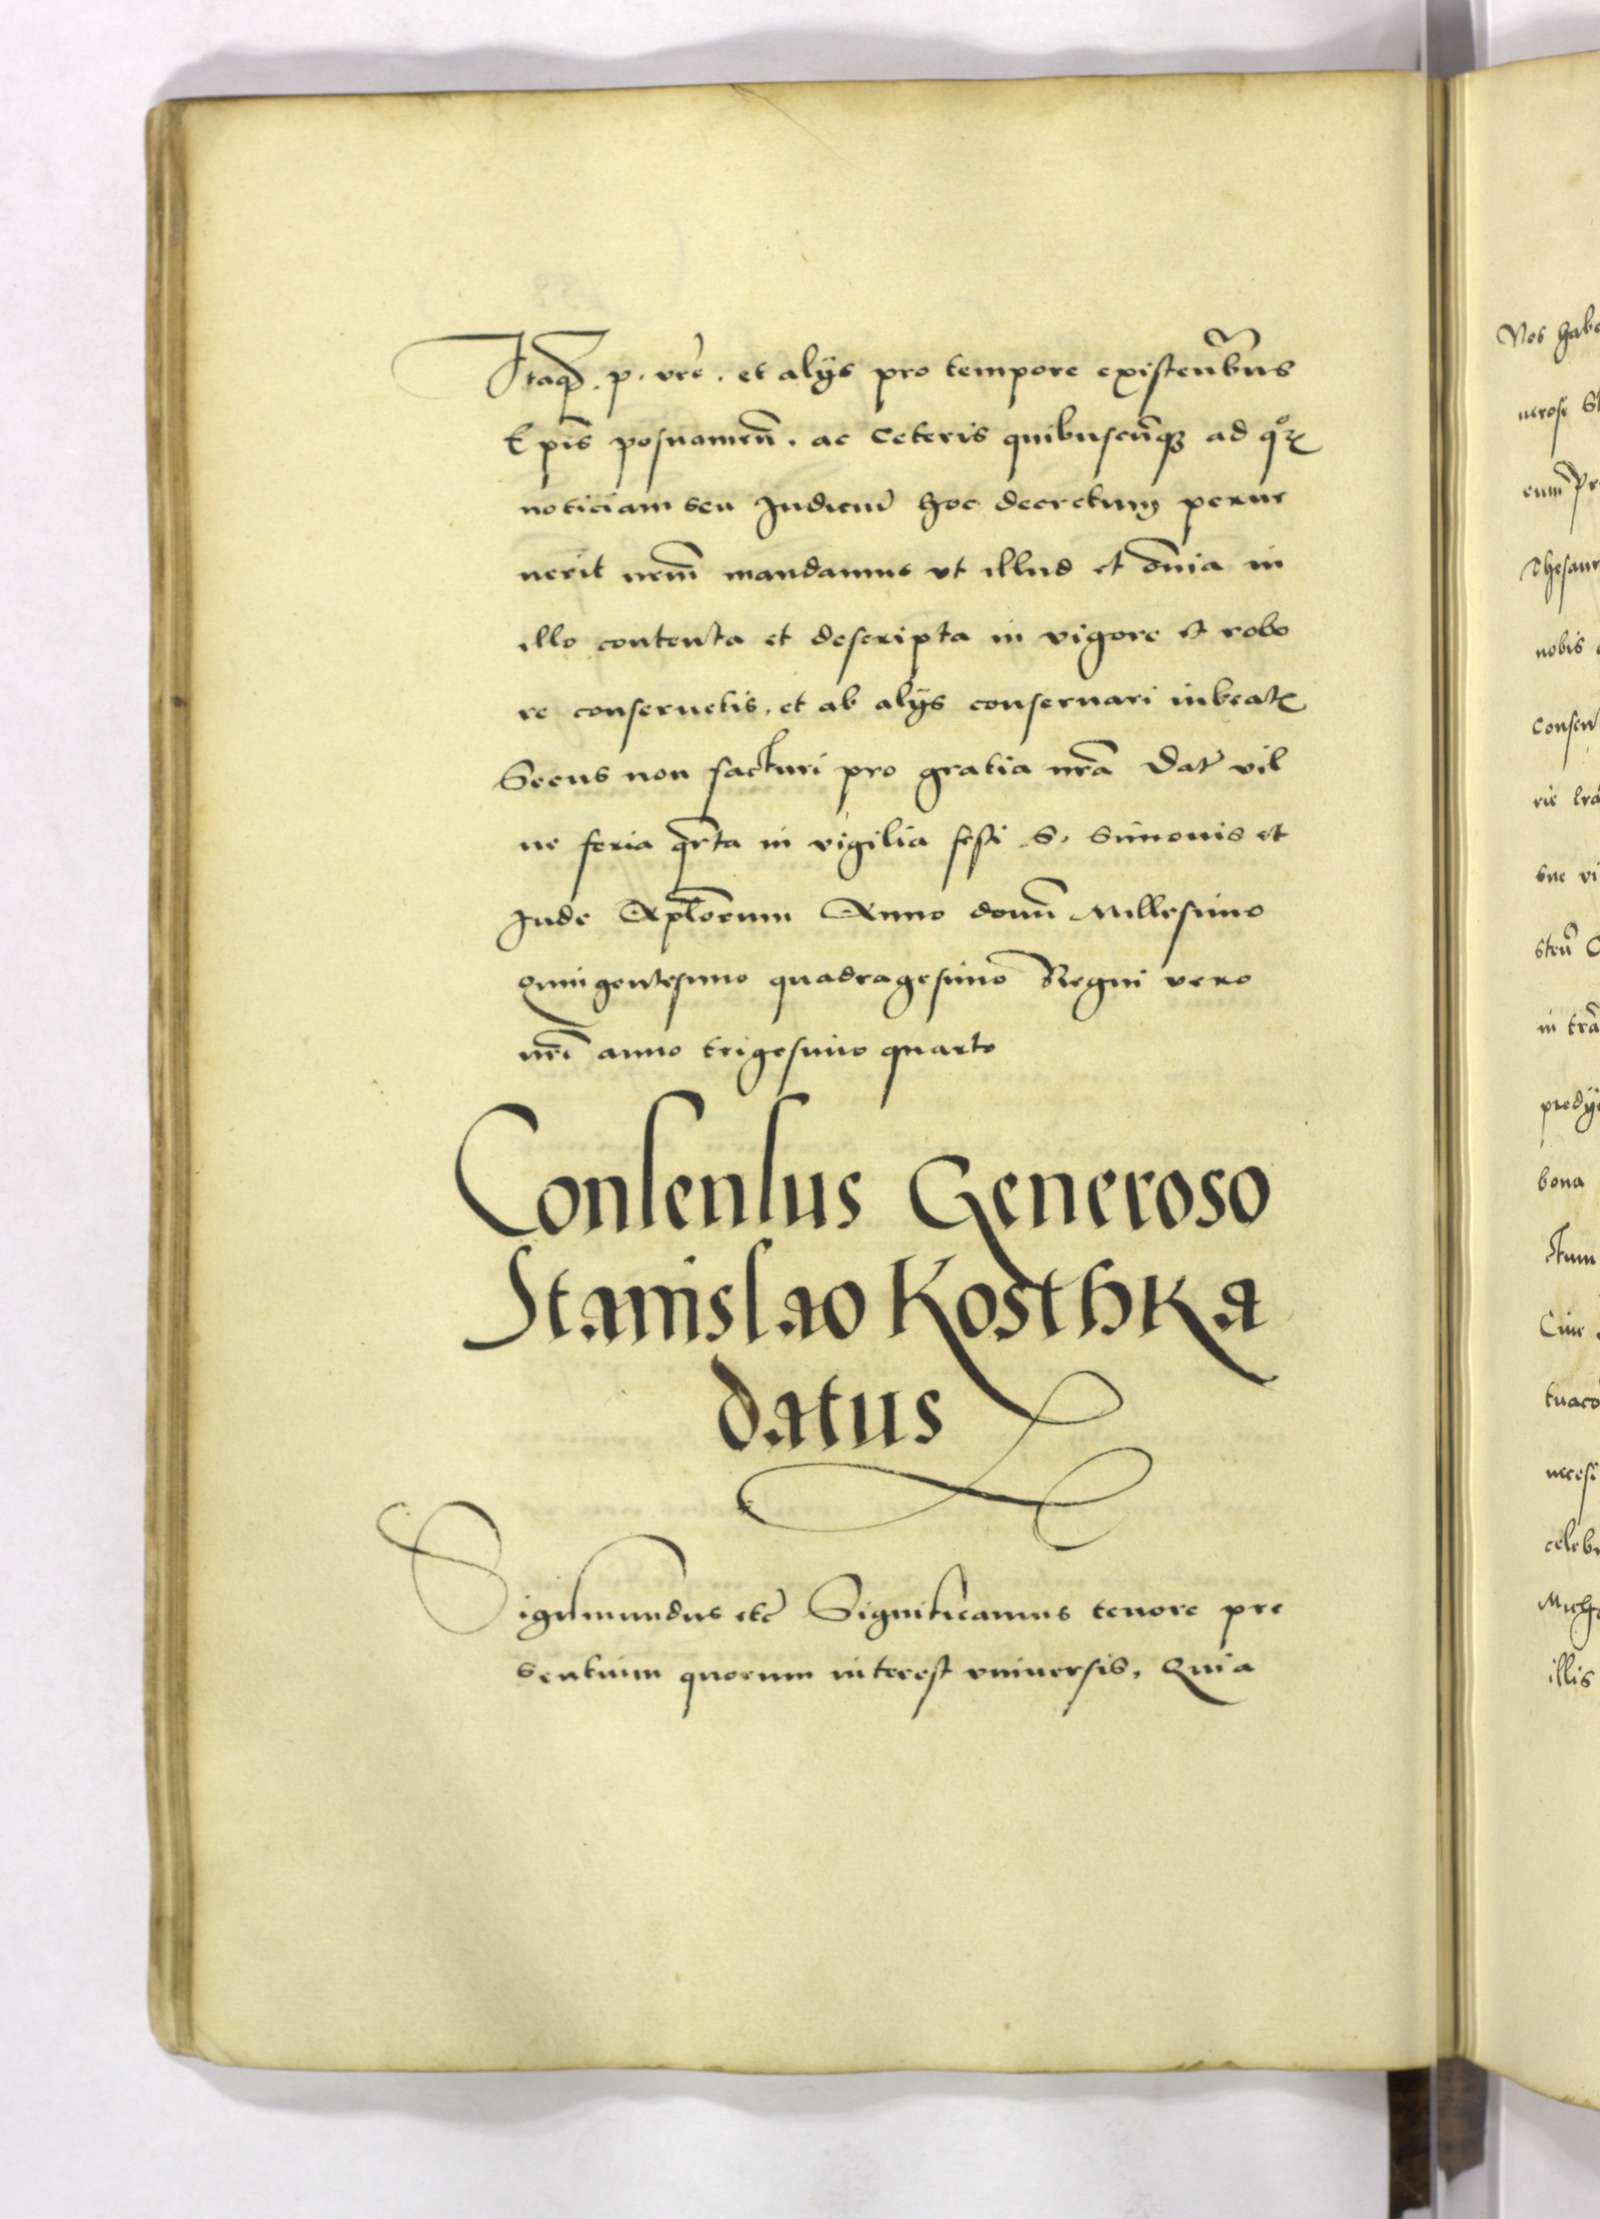 Itaq₃ . p. vrē . et alijs pro tempore existen̄bus
Epīs posnamen̄ . ac Ceteris quibuscun̄q₃ ad qoꝝ
noticiam seu Judiciū hoc decretum perue
nerit nem̄ mandamus vt illud et om̄ia in
illo contenta et descripta in vigore et robo
re conseruetis . et ab alijs conseruari iubeatꝭ
Secus non facturi pro gratia nrā Dat̄ vil
ne feria qr̄ta in vigilia festi S. Simonis et
Jude Apl̄orum Anno domn̄ Millesimo
quingentesimo quadragesimo Regni vero
nrī anno trigesimo quarto
Consensus Generoso
Stanislao Kosthka
datus
Sigismundus etc̄ Significamus tenore pre
sentium quorum interest vniuersis, Quia
Nos habe
nerosi St
eum Pr
Thesaur
nobis
Consen
ris lrā
sue vi
sten̄ C
in trā
predij
bona
stum
Ciue
tuaco
necesi
celeb
Mich
illis